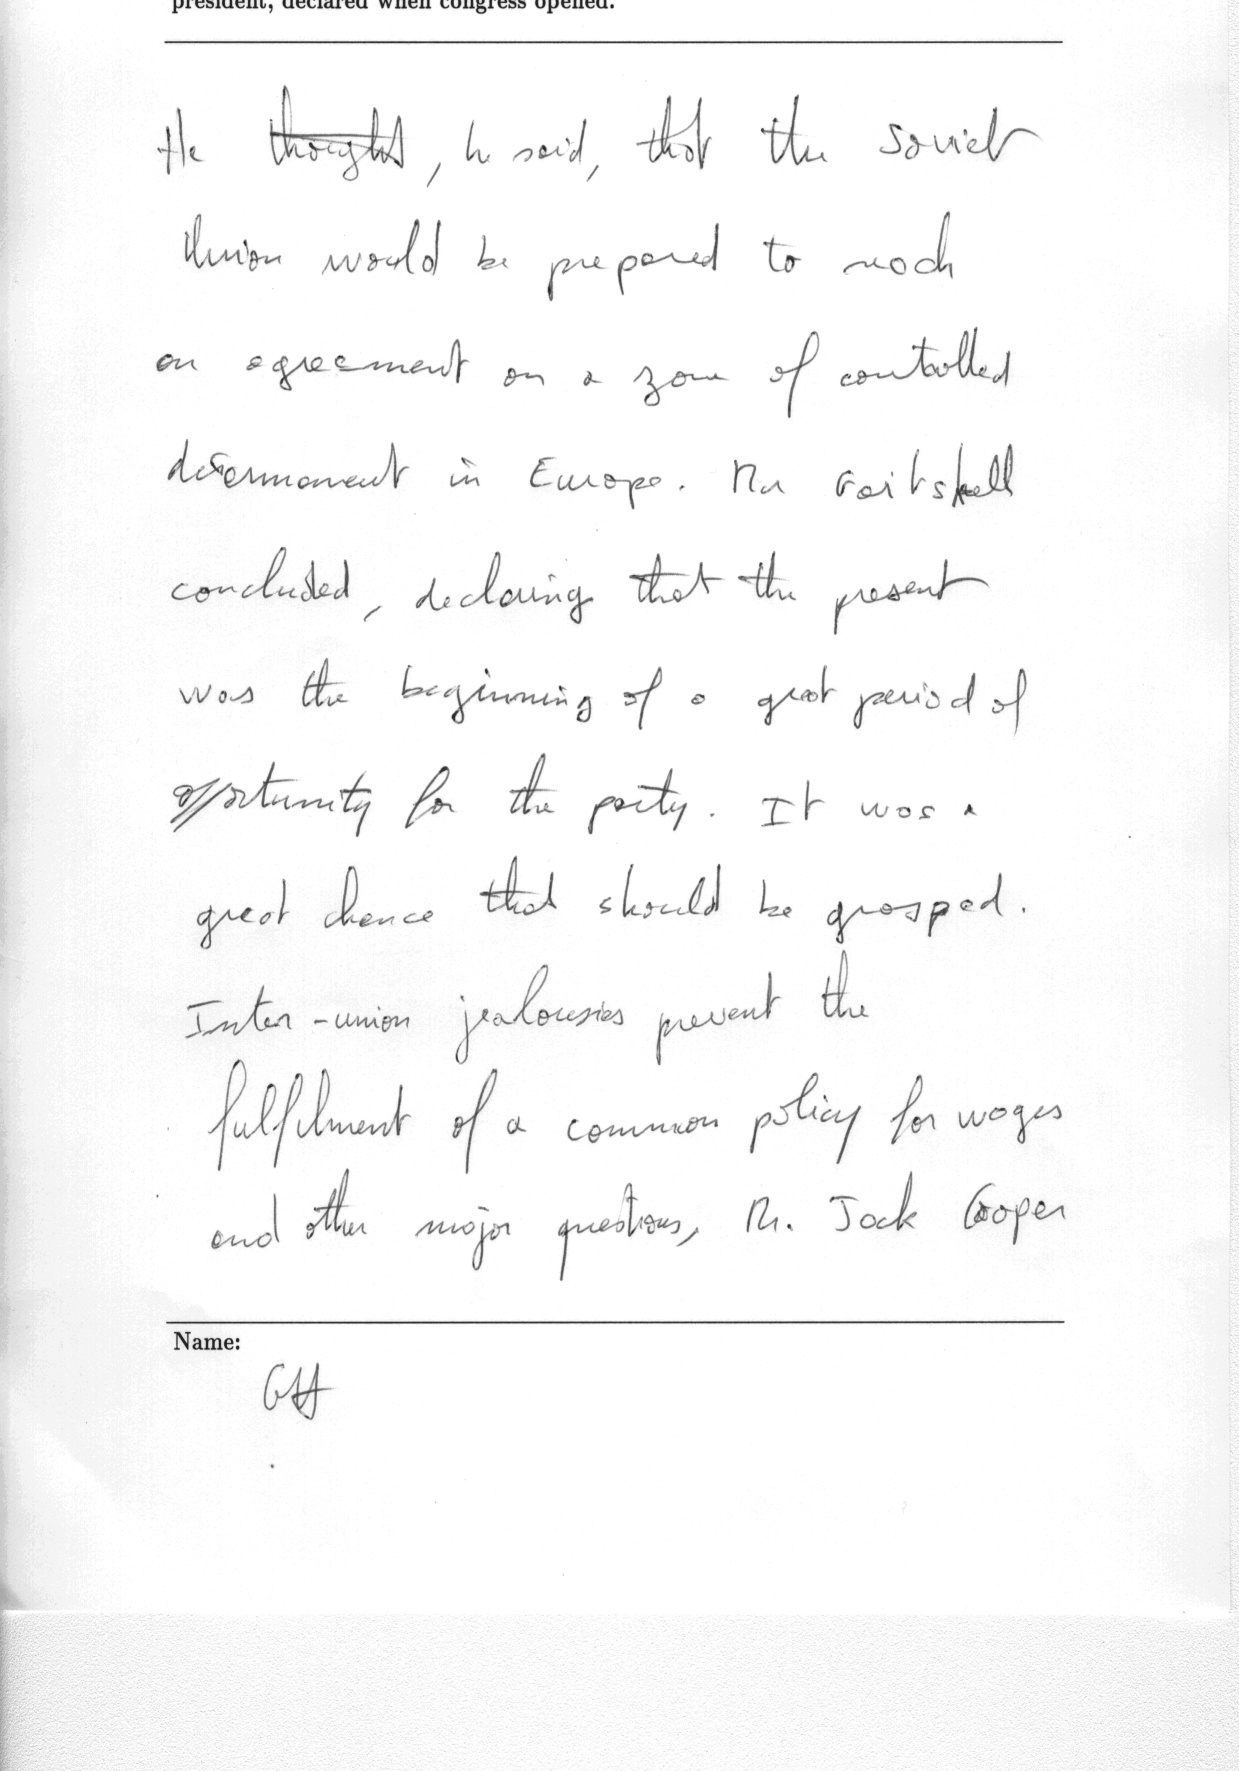 president, declared when congress opened.
He thought, he said, that the Soviet
Union would be prepared to reach
an agreement on a zone of controlled
disarmament in Europe. Mr Gaitskell
concluded, declaring that the present
was the beginning of a great period of
opportunity for the party. It was a
great chance that should be grasped.
Inter-union jealousies prevent the
fulfilment of a common policy for wages
and other major questions, Mr. Jack Cooper
Name: